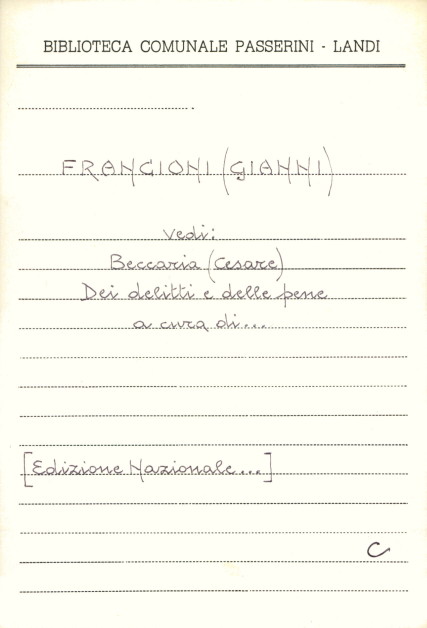 BIBLIOTECA COMUNALE PASSERINI - LANDI
FRANCIONI (GIANNI)
vedi:
Beccaria (Cesare)
Dei delitti e delle pene
a cura di...
[Edizione Nazionale...]
C